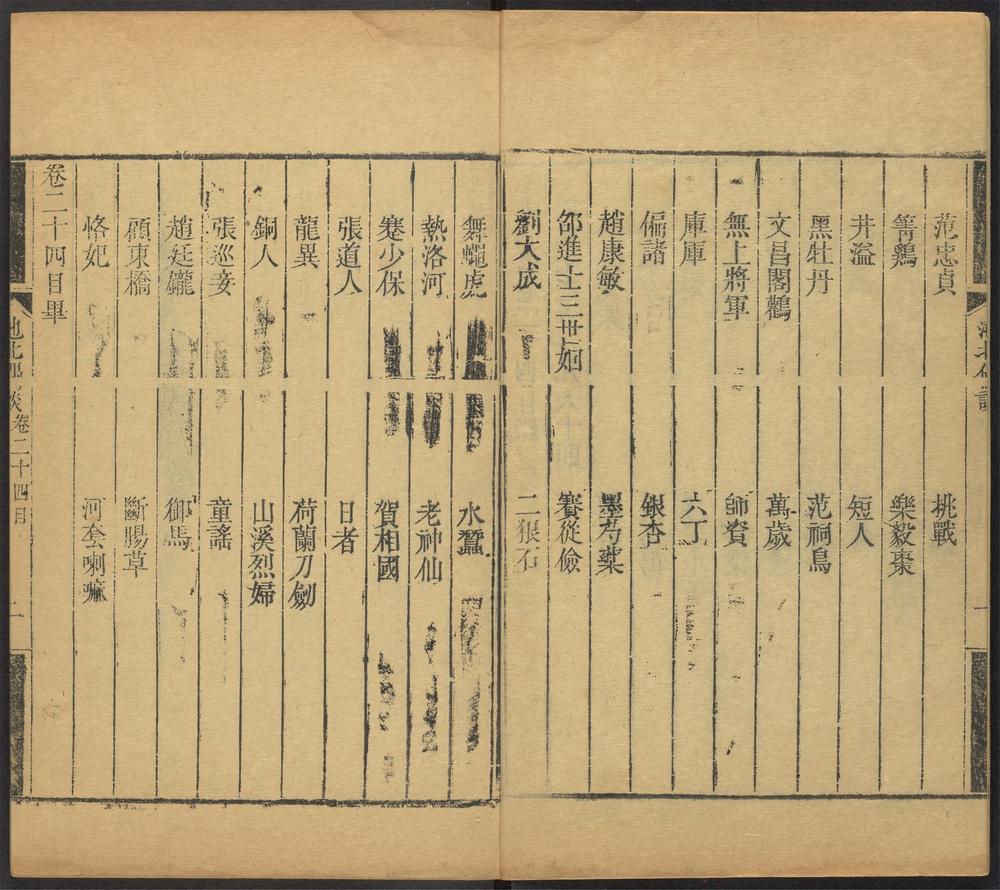 范忠貞 挑戰
箐鷄 樂毅棗
井溢 短人
黑牡丹 范祠鳥
文昌閣鸛 萬歲
無上將軍 師資
庫庫 六丁
偏諸 銀杏
趙康敏 墨芍藥
邵進士三世姻 賽從儉
劉大成 二狠石
舞蠅虎 水蠶
熱洛河 老神仙
蹇少保 賀相國
張道人 日者
龍異 荷蘭刀劒
銅人 山溪烈婦
張巡妾 童謠
趙廷鑨 御馬
顧東橋 斷腸草
恪妃 河套喇嘛
卷二十四目畢
池北偶談 卷二十四目 一